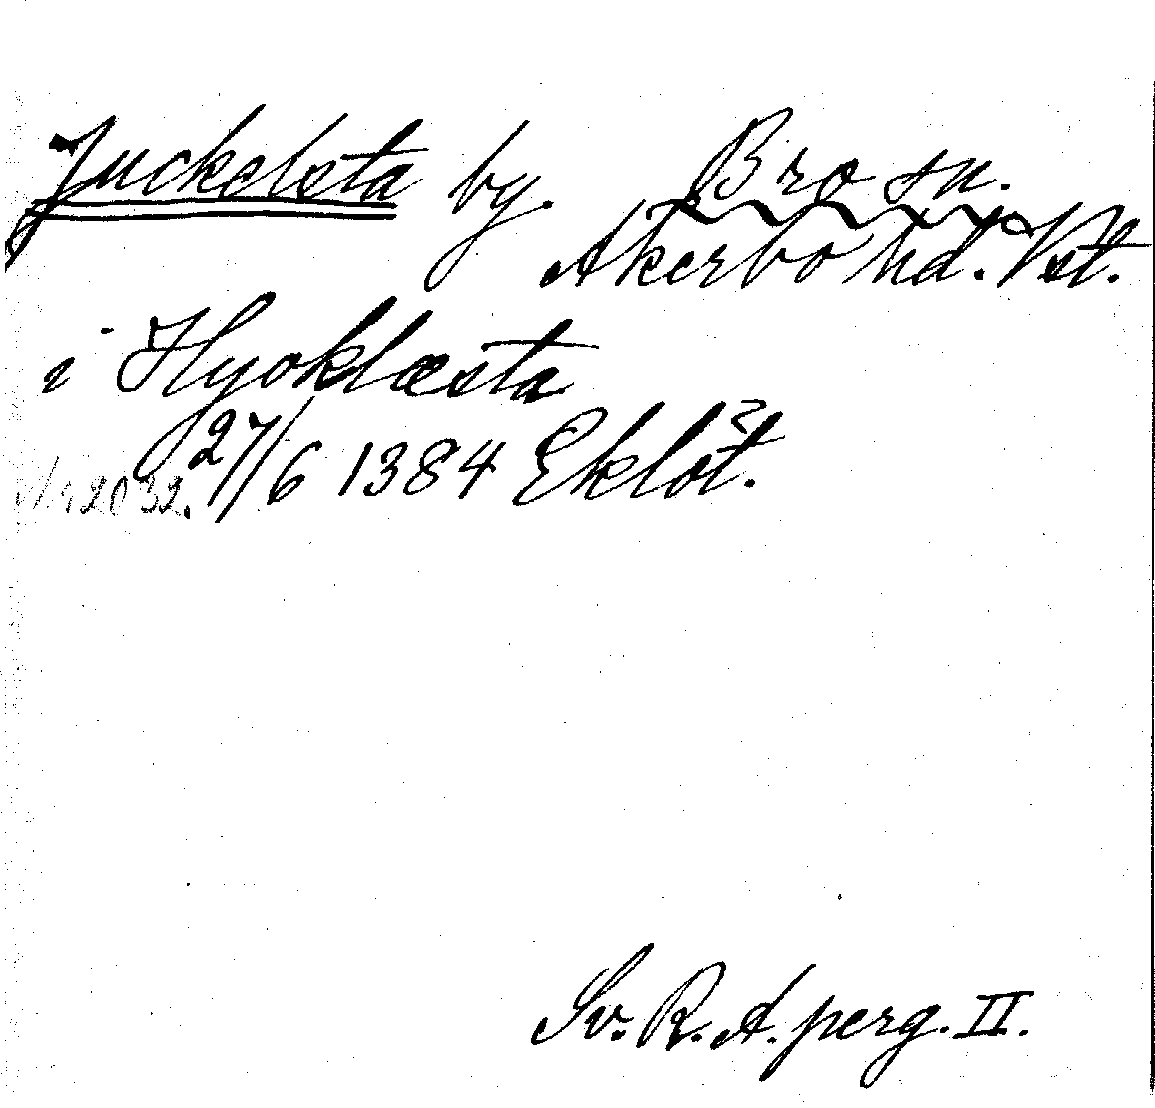 Juckelsta by. Bro sn.
Åkerbo hd. Vst.
i Hyoklæsta
27/6 1384 Eklöt.
nr 2032.
Sv. R. A. perg. II.